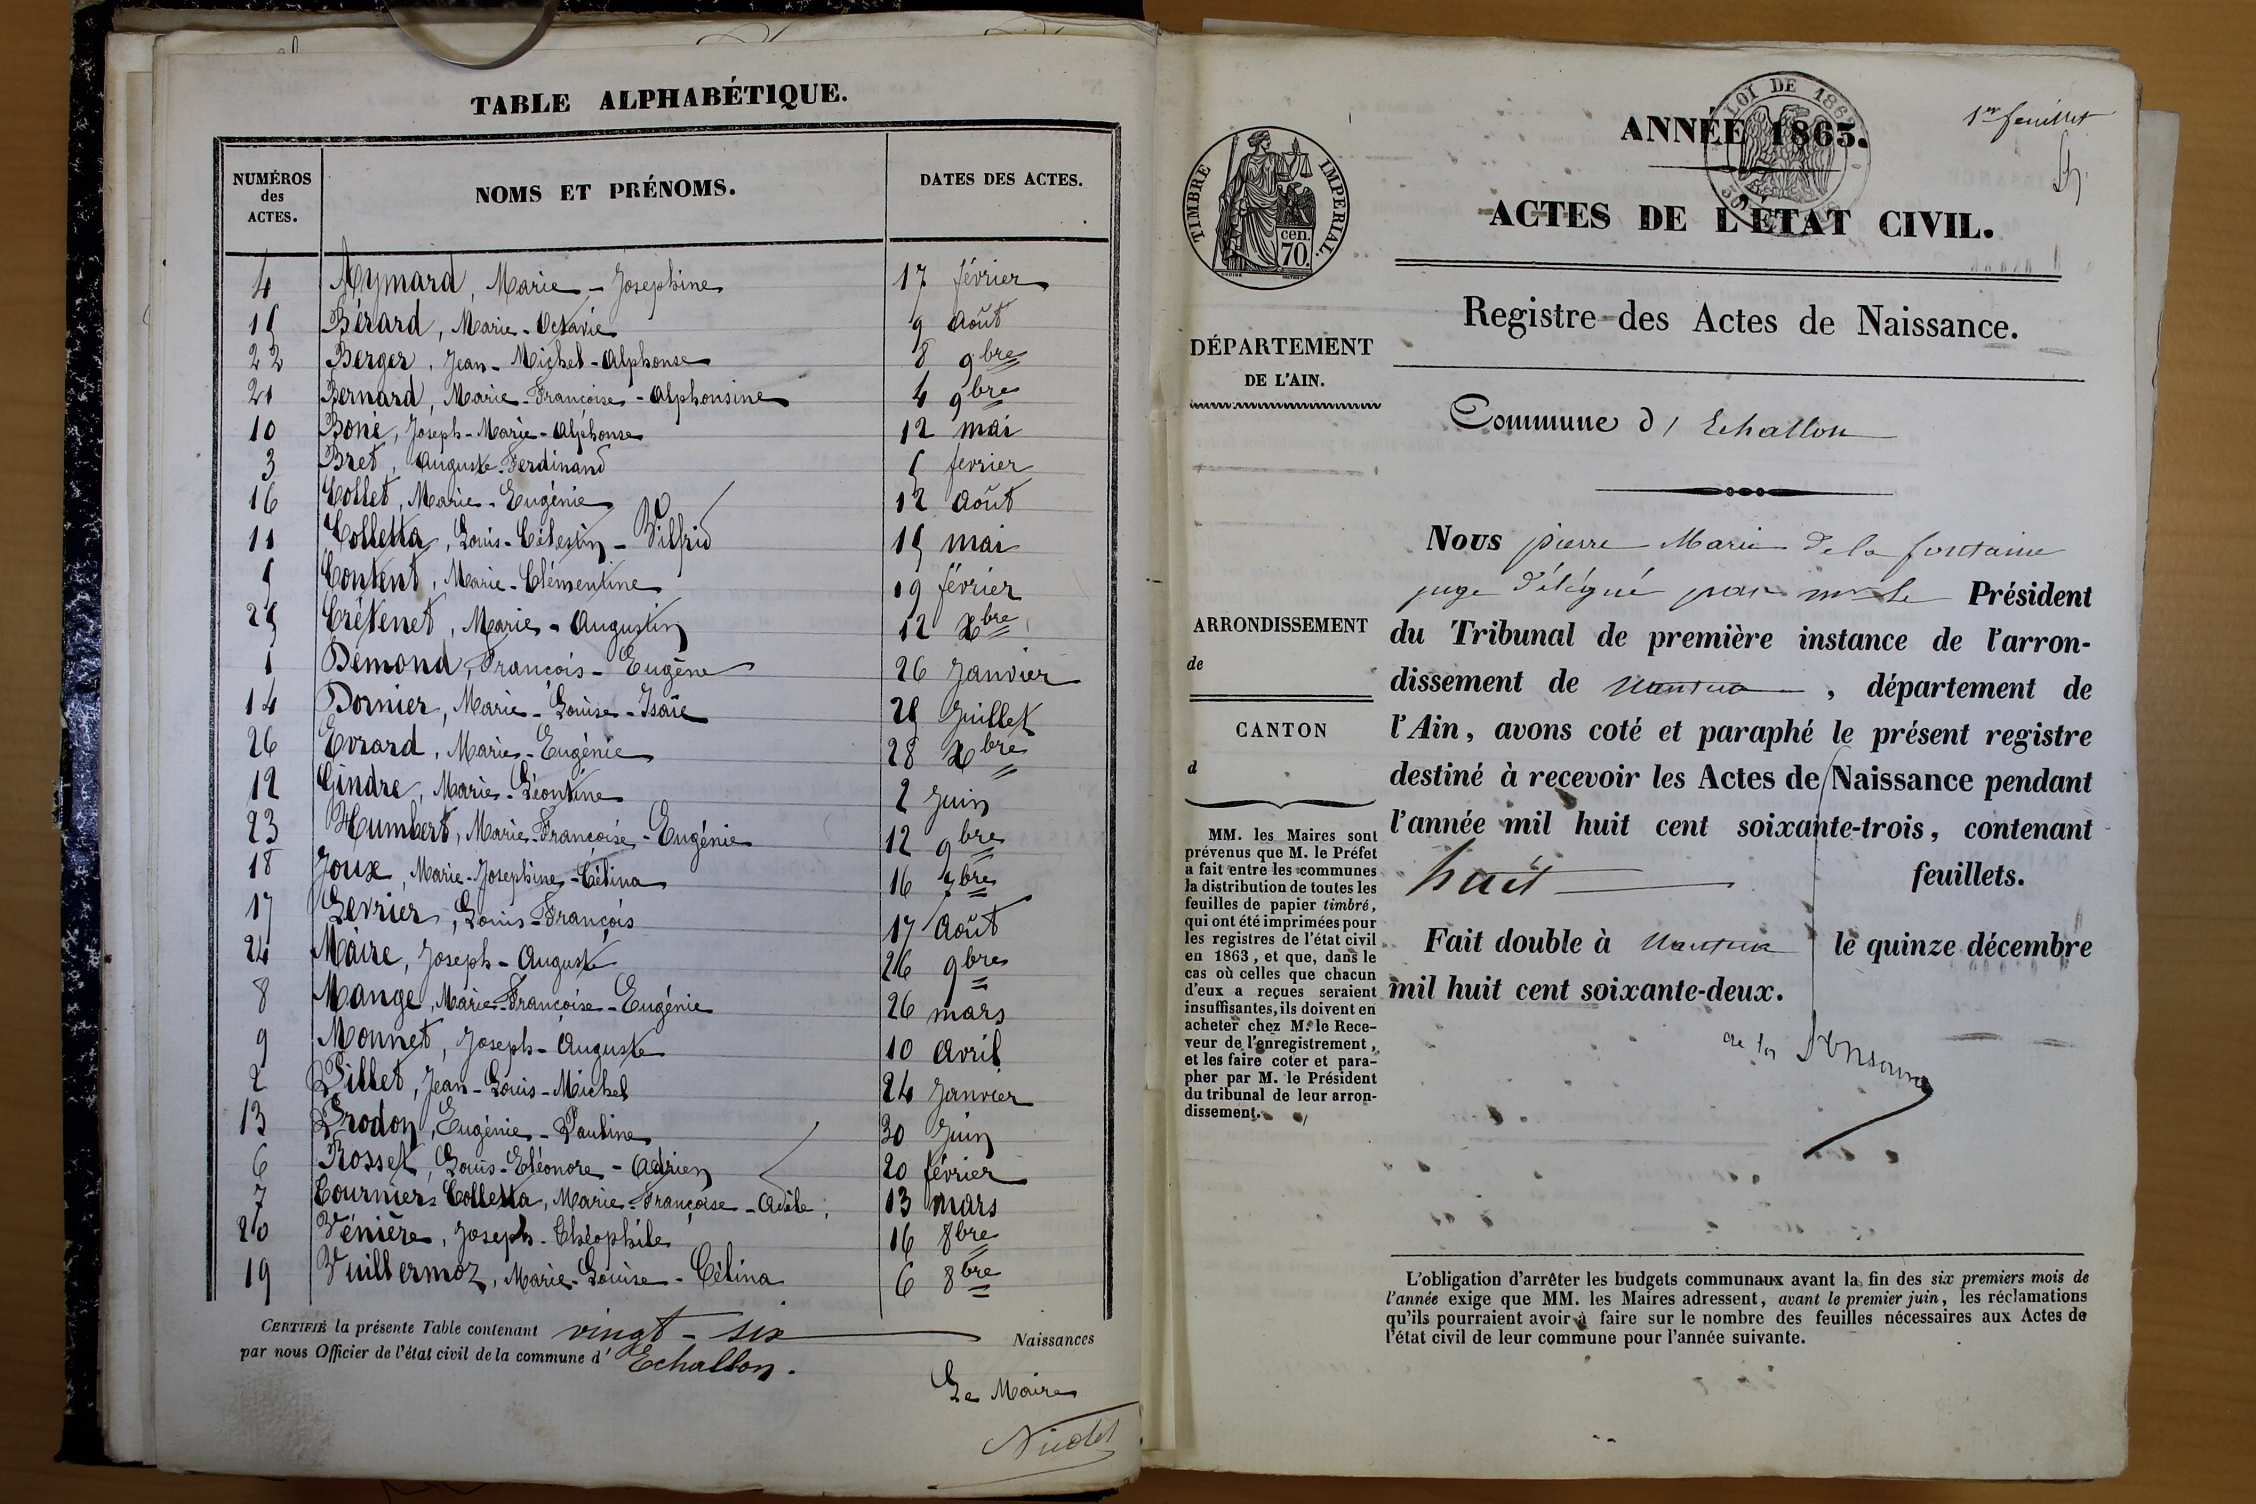 TABLE ALPHABÉTIQUE.
NUMÉROS des ACTES. NOMS ET PRÉNOMS. DATES DES ACTES.
4 Aymard, Marie-Josephine 17 février
15 Bérard, Marie-Octavie 9 août
22 Berger, Jean-Michel-Alphonse 8 9bre
21 Bernard, Marie-Françoise-Alphonsine 4 9bre
10 Boné, Joseph-Marie-Alphonse 12 mai
3 Bret, Auguste-Ferdinand 5 fevrier
16 Collet, Marie-Eugénie 12 août
11 Colletta, Louis-Célestin-Vilfrid 15 mai
5 Content, Marie-Clémentine 19 février
25 Crétenet, Marie-Augustin 12 Xbre
1 Démond, François-Eugène 26 Janvier
14 Dornier, Marie-Louise-Isaïe 25 Juillet
26 Evrard, Marie-Eugénie 28 Xbre
12 Gindre, Marie-Léontine 2 Juin
23 Humbert, Marie-Françoise-Eugénie 12 9bre
18 Joux, Marie-Josephine-Célina 16 7bre
17 Levrier, Louis-François 17 Août
24 Maire, Joseph-Auguste 26 9bre
8 Mange, Marie-Françoise-Eugénie 26 mars
9 Monnet, Joseph-Auguste 10 Avril
2 Pillet, Jean-Louis-Michel 24 Janvier
13 Prodon, Eugénie-Pauline 30 Juin
6 Rosset, Louis-Eléonore-Adrien 20 février
7 Tournier-Colletta, Marie-Françoise-Adèle, 13 mars
20 Vénière, Joseph-Théophile 16 8bre
19 Vuillermoz, Marie-Louise-Célina 6 8bre
CERTIFIÉ la présente Table contenant vingt-six Naissances
par nous Officier de l'état civil de la commune d' Echallon.
Le Maire
Nicolet
1er feuillet
LOI DE 1862
ANNÉE 1863.
ACTES DE L'ÉTAT CIVIL.
TIMBRE IMPÉRIAL.
cen. 70.
Registre des Actes de Naissance.
DÉPARTEMENT
DE L'AIN.
Commune d' Echallon
ARRONDISSEMENT
de
CANTON
d
MM. les Maires sont
prévenus que M. le Préfet
a fait entre les communes
la distribution de toutes les
feuilles de papier timbré,
qui ont été imprimées pour
les registres de l'état civil
en 1863, et que, dans le
cas où celles que chacun
d'eux a reçues seraient
insuffisantes, ils doivent en
acheter chez M. le Rece-
veur de l'enregistrement,
et les faire coter et para-
pher par M. le Président
du tribunal de leur arron-
dissement.
Nous pierre Marie de la fontaine
juge délégué par mr le Président
du Tribunal de première instance de l'arron-
dissement de Nantua, département de
l'Ain, avons coté et paraphé le présent registre
destiné à recevoir les Actes de Naissance pendant
l'année mil huit cent soixante-trois, contenant
huit feuillets.
Fait double à Nantua le quinze décembre
mil huit cent soixante-deux.
de la
L'obligation d'arrêter les budgets communaux avant la fin des six premiers mois de
l'année exige que MM. les Maires adressent, avant le premier juin, les réclamations
qu'ils pourraient avoir à faire sur le nombre des feuilles nécessaires aux Actes de
l'état civil de leur commune pour l'année suivante.